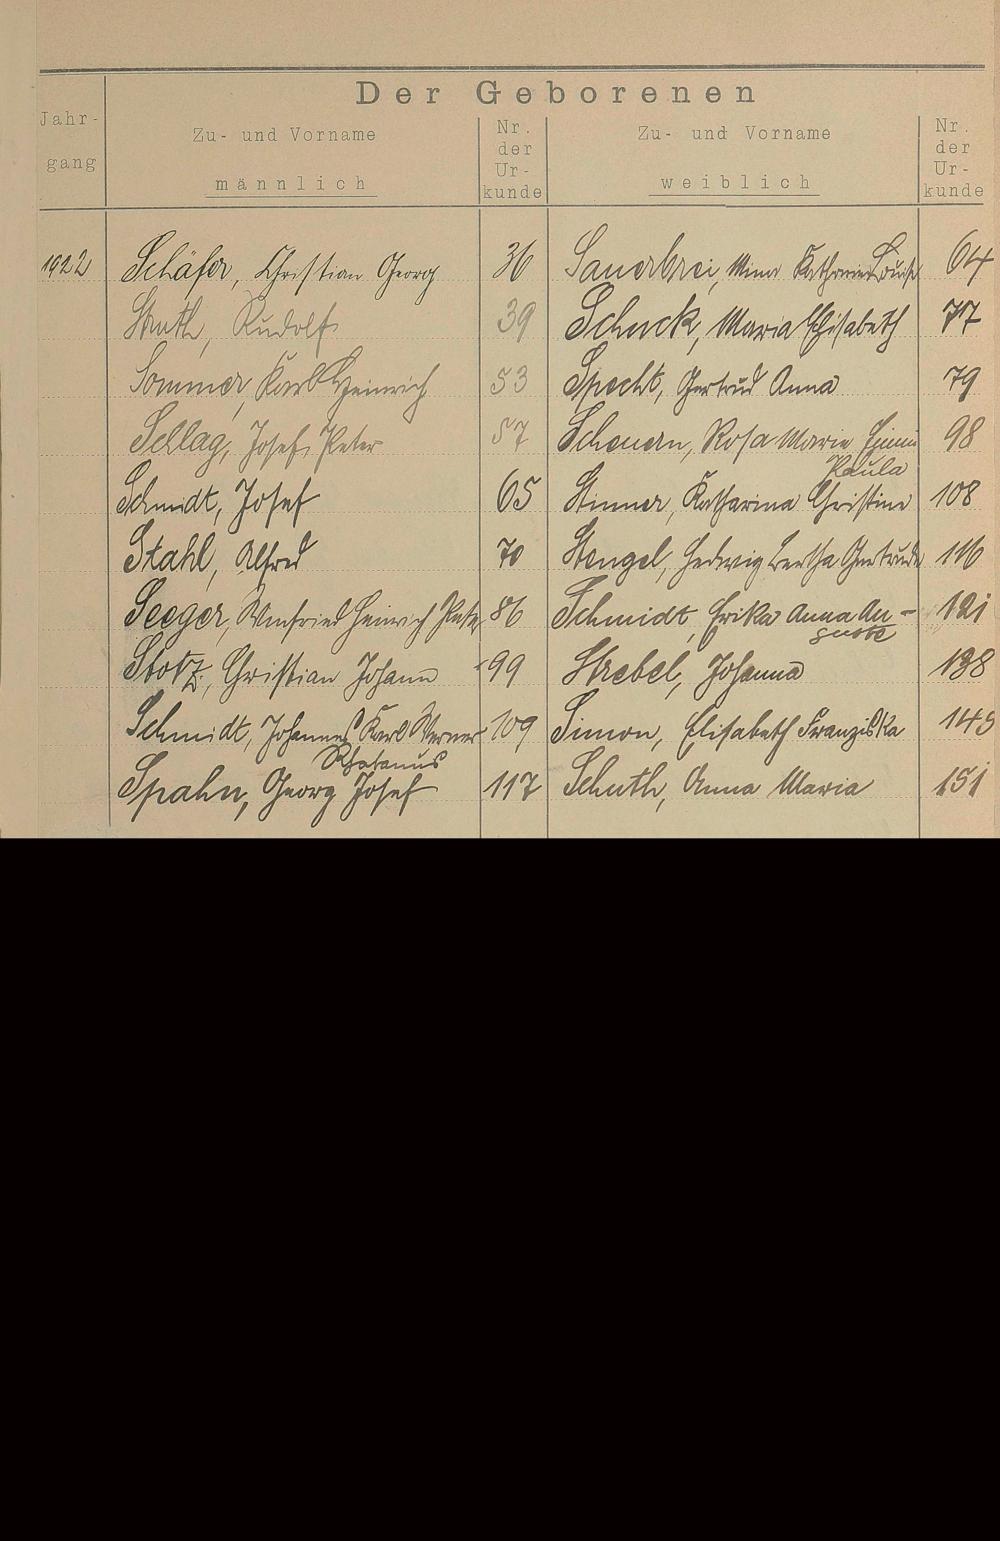 Der Geborenen
Jahr-
gang
Zu- und Vorname
männlich
Nr.
der
Ur-
kunde
Zu- und Vorname
weiblich
Nr.
der
Ur-
kunde
1922 Schäfer, Christian Georg 36 Sauerbrei, Minna Katharina Louise 64
Rudolf 39 Schuck, Maria Elisabeth 77
Sommer, Karl Heinrich 53 Specht, Gertrud Anna 79
Schlag, Josef Peter 57 Scheuern, Rosa Maria 98
Paula
Schmidt, Josef 65 Stinner, Katharina Christine 108
Stahl, Alfred 70 Stengel, Hedwig Bertha Gertrude 116
Seeger, Winfried Heinrich Peter 86 Schmidt, Erika Anna Au- 121
guste
Stotz, Christian Johann 99 Strebel, Johanna 138
Schmidt, Johannes Karl Werner 109 Simon, Elisabeth Franziska
Spahn, Georg Josef 117 Schuth, Anna Maria 151